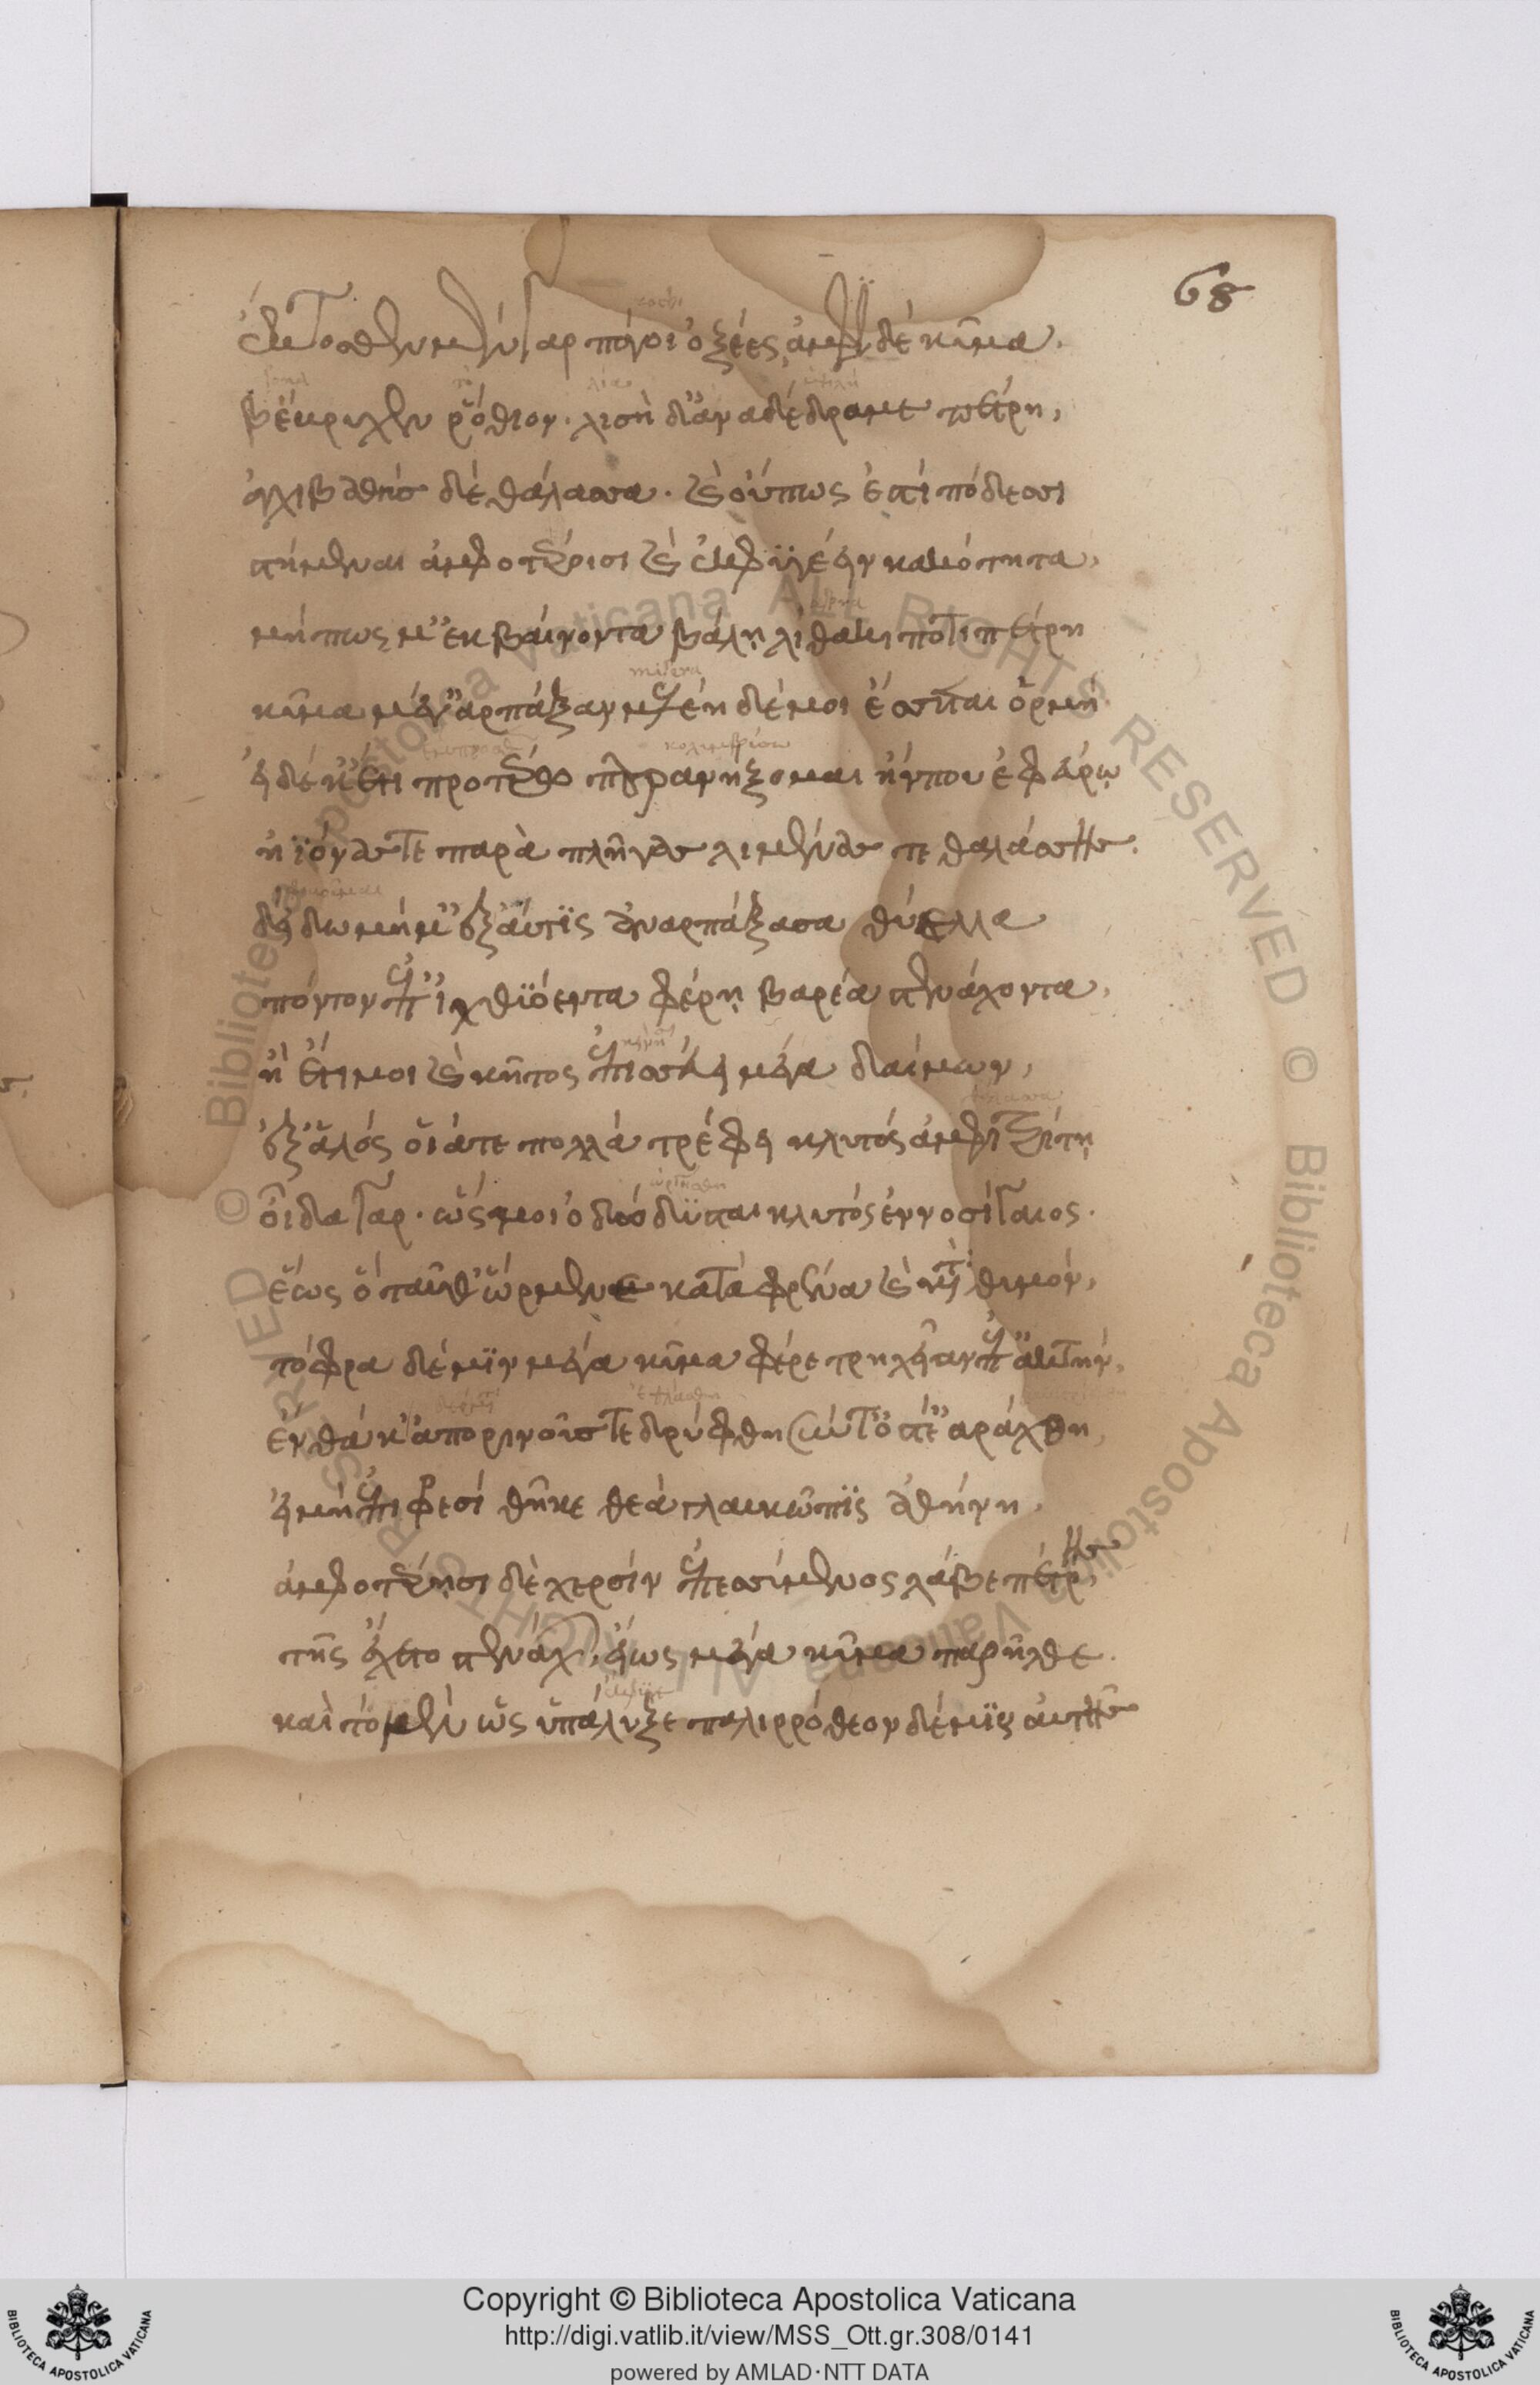 68
ἔκτοσθεν μὲν γὰρ πάγοι ὀξέες, ἀμφὶ δὲ κῦμα.
βέβρυχεν ῥόθιον· λισὴ δ' ἀναδέδρομε πέτρη,
ἀγχιβαθὴς δὲ θάλασσα· καὶ οὔπως ἐστὶ πόδεσσι
στήμεναι ἀμφοτέροισι καὶ ἐκφυγέειν κακότητα,
μήπως μ' ἐκβαίνοντα βάλῃ λίθακι ποτὶ πέτρη
misera
κῦμα μέγ' ἁρπάξαν μελέη δέ μοι ἔσσεται ὁρμή.
κολυμβήσω
εἰ δέ κ' ἔτι προτέρω παρανήξομαι ἤν που ἐφεύρω
ἠϊόνας τε παραπλῆγας λιμένας τε θαλάσσης.
δείδω μή μ' ἐξαῦτις ἀναρπάξασα θύελλα
πόντον ἐπ' ἰχθυόεντα φέρῃ βαρέα στενάχοντα,
ἠὲ ἔτι μοι καὶ κῆτος ἐπισσεύῃ μέγα δαίμων,
ἐξ ἁλός οἷά τε πολλὰ τρέφει κλυτός ἀμφιτρίτη
οἶδα γὰρ· ὥς μοι ὀδώδυσται κλυτός ἐννοσίγαιος.
ἕως ὁ ταῦθ' ὥρμαινε κατὰ φρένα καὶ κατὰ θυμόν,
τόφρα δέ μιν μέγα κῦμα φέρε τρηχεῖαν ἐπ' ἀκτήν,
ἔνθά κ' ἀπὸ ῥινούς τε δρύφθη σὺν τ' ὀστέ' ἀράχθη,
εἰ μὴ ἐπὶ φρεσί θῆκε θεὰ γλαυκῶπις ἀθήνη.
ἀμφοτέρῃσι δὲ χερσίν ἐπεσσύμενος λάβε πέτρης,
τῆς ἔχετο στενάχων, εἵως μέγα κῦμα παρῆλθε.
καὶ τὸ μὲν ὣς ὑπάλυξε παλιρρόθιον δέ μιν αὖτις
Copyright © Biblioteca Apostolica Vaticana
http://digi.vatlib.it/view/MSS_Ott.gr.308/0141
powered by AMLAD·NTT DATA
BIBLIOTECA APOSTOLICA VATICANA
BIBLIOTECA APOSTOLICA VATICANA
© Biblioteca Apostolica Vaticana ALL RIGHTS RESERVED © Biblioteca Apostolica Vaticana ALL RIGHTS RESERVED